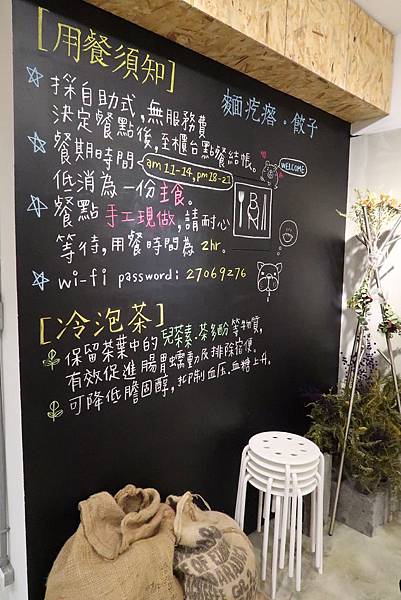 [用餐須知]
麵疙瘩．餃子
採自助式,無服務費
決定餐點後,至櫃台點餐結帳。
餐期時間 am 11-14, pm 18-21
低消為一份主食。
餐點手工現做,請耐心
等待,用餐時間為 2hr。
WELCOME
wi-fi password: 27069276
[冷泡茶]
保留茶葉中的兒茶素.茶多酚等物質,
有效促進腸胃蠕動及排除宿便.
可降低膽固醇,抑制血压.血糖上升.